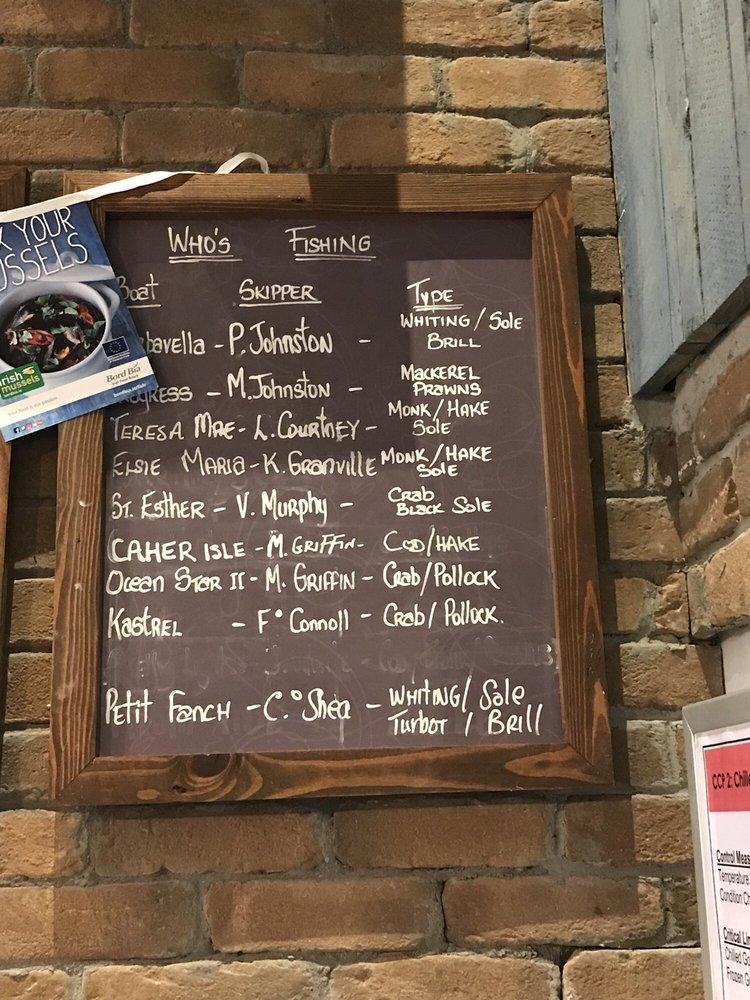 WHO'S FISHING
Boat SKIPPER TYPE
bavella - P. Johnston - WHITING / Sole
BRILL
ogress - M. Johnston - MACKEREL
PRAWNS
TERESA MAE - L. COURTNEY - MONK / HAKE
Sole
ELSIE MARIA - K. Granville MONK / HAKE
Sole
ST. ESTHER - V. Murphy - Crab
Black Sole
CAHER ISLE - M. GRIFFIN - COD / HAKE
Ocean Star II - M. GRIFFIN - Crab / Pollock
Kastrel - F° Connoll - Crab / Pollock.
Petit Fanch - C.° Shea - WHITING / Sole
Turbot / Brill
K YOUR
USSELS
irish
mussels
Bord Bía
Your food is our passion
CCP 2: Chille
Control Meas
Temperature
Condition Ch
Critical Lim
Chilled Go
Frozen G